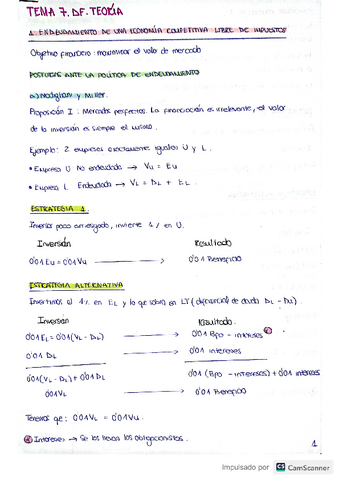 TEMA 7. DF. TEORÍA
1. ENDEUDAMIENTO DE UNA ECONOMÍA COMPETITIVA LIBRE DE IMPUESTOS
Objetivo financiero: maximizar el valor de mercado
POSTURAS ANTE LA POLÍTICA DE ENDEUDAMIENTO
a) Modigliani y Miller.
Proposición I: Mercados perfectos. La financiación es irrelevante, el valor
de la inversión es siempre el mismo.
Ejemplo: 2 empresas exactamente iguales U y L.
• Empresa U No endeudada → VU = EU
• Empresa L Endeudada → VL = DL + EL.
ESTRATEGIA 1
Inversor poco arriesgado, invierte 1% en U.
Inversión Resultado
0'01 EU = 0'01 VU → 0'01 Beneficio
ESTRATEGIA ALTERNATIVA
Invertimos el 1% en EL y lo que sobra en LT (diferencial de deuda DL - DU).
Inversión Resultado.
0'01 EL = 0'01 (VL - DL) → 0'01 Bfo - intereses
0'01 DL → 0'01 intereses
0'01 (VL - DL) + 0'01 DL 0'01 (Bfo - intereses) + 0'01 intereses
0'01 VL → 0'01 Beneficio
Tenemos qe: 0'01 VL = 0'01 VU.
Intereses → Se los llevan los obligacionistas.
1
Impulsado por CS CamScanner